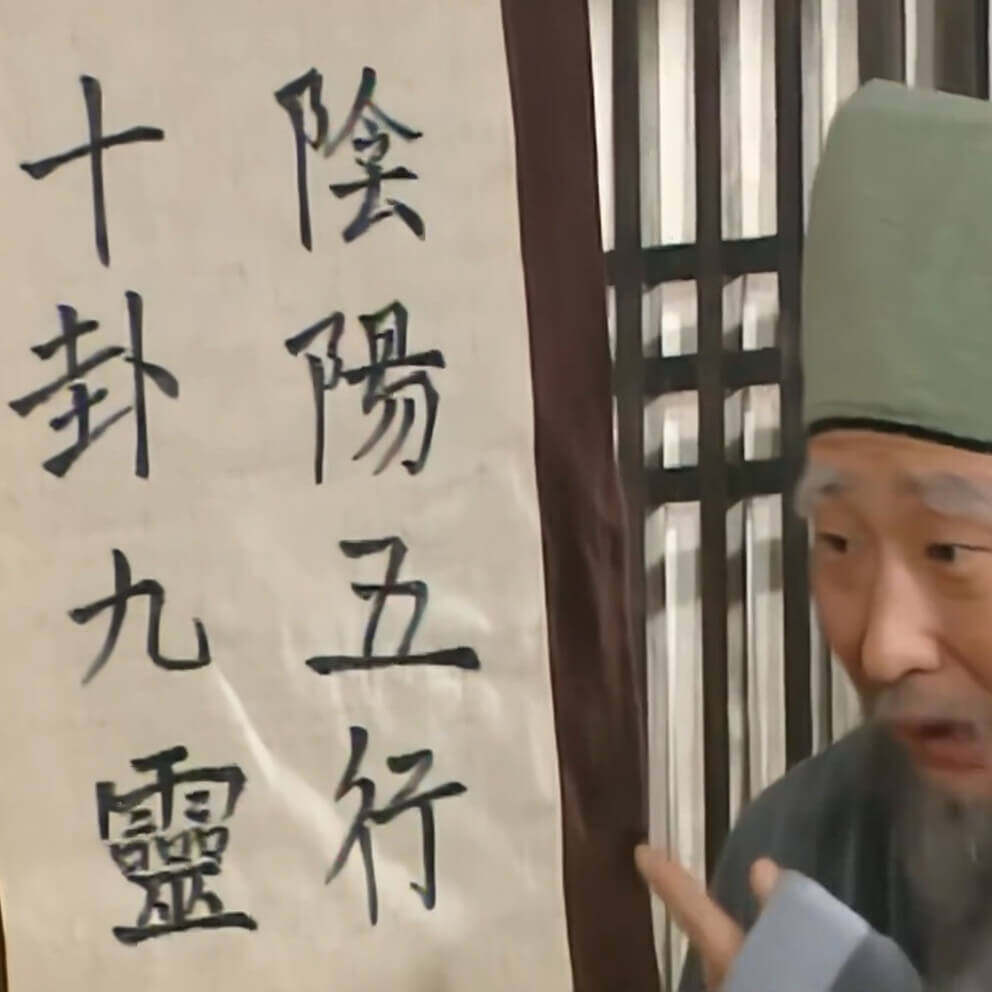 陰陽五行
十卦九靈